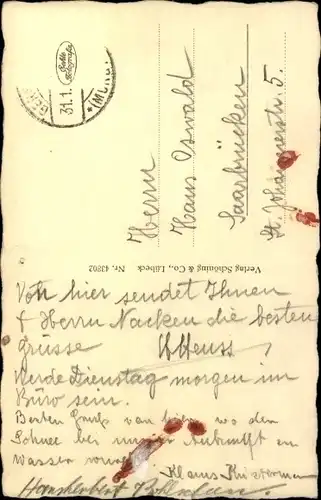 Echte Fotografie
31.1.
Herrn
Hans Oswald
Saarbrücken
St. Johannerstr 5.
Verlag Schöning & Co., Lübeck Nr. 43802
Von hier sendet Ihnen
+ Herrn Nacken die besten
Grüsse HHeuss
Werde Dienstag morgen im
Büro sein.
Besten Gruß von hier, wo der
Schnee bei unserer Ankunft zu
Wasser wurde.
Klaus